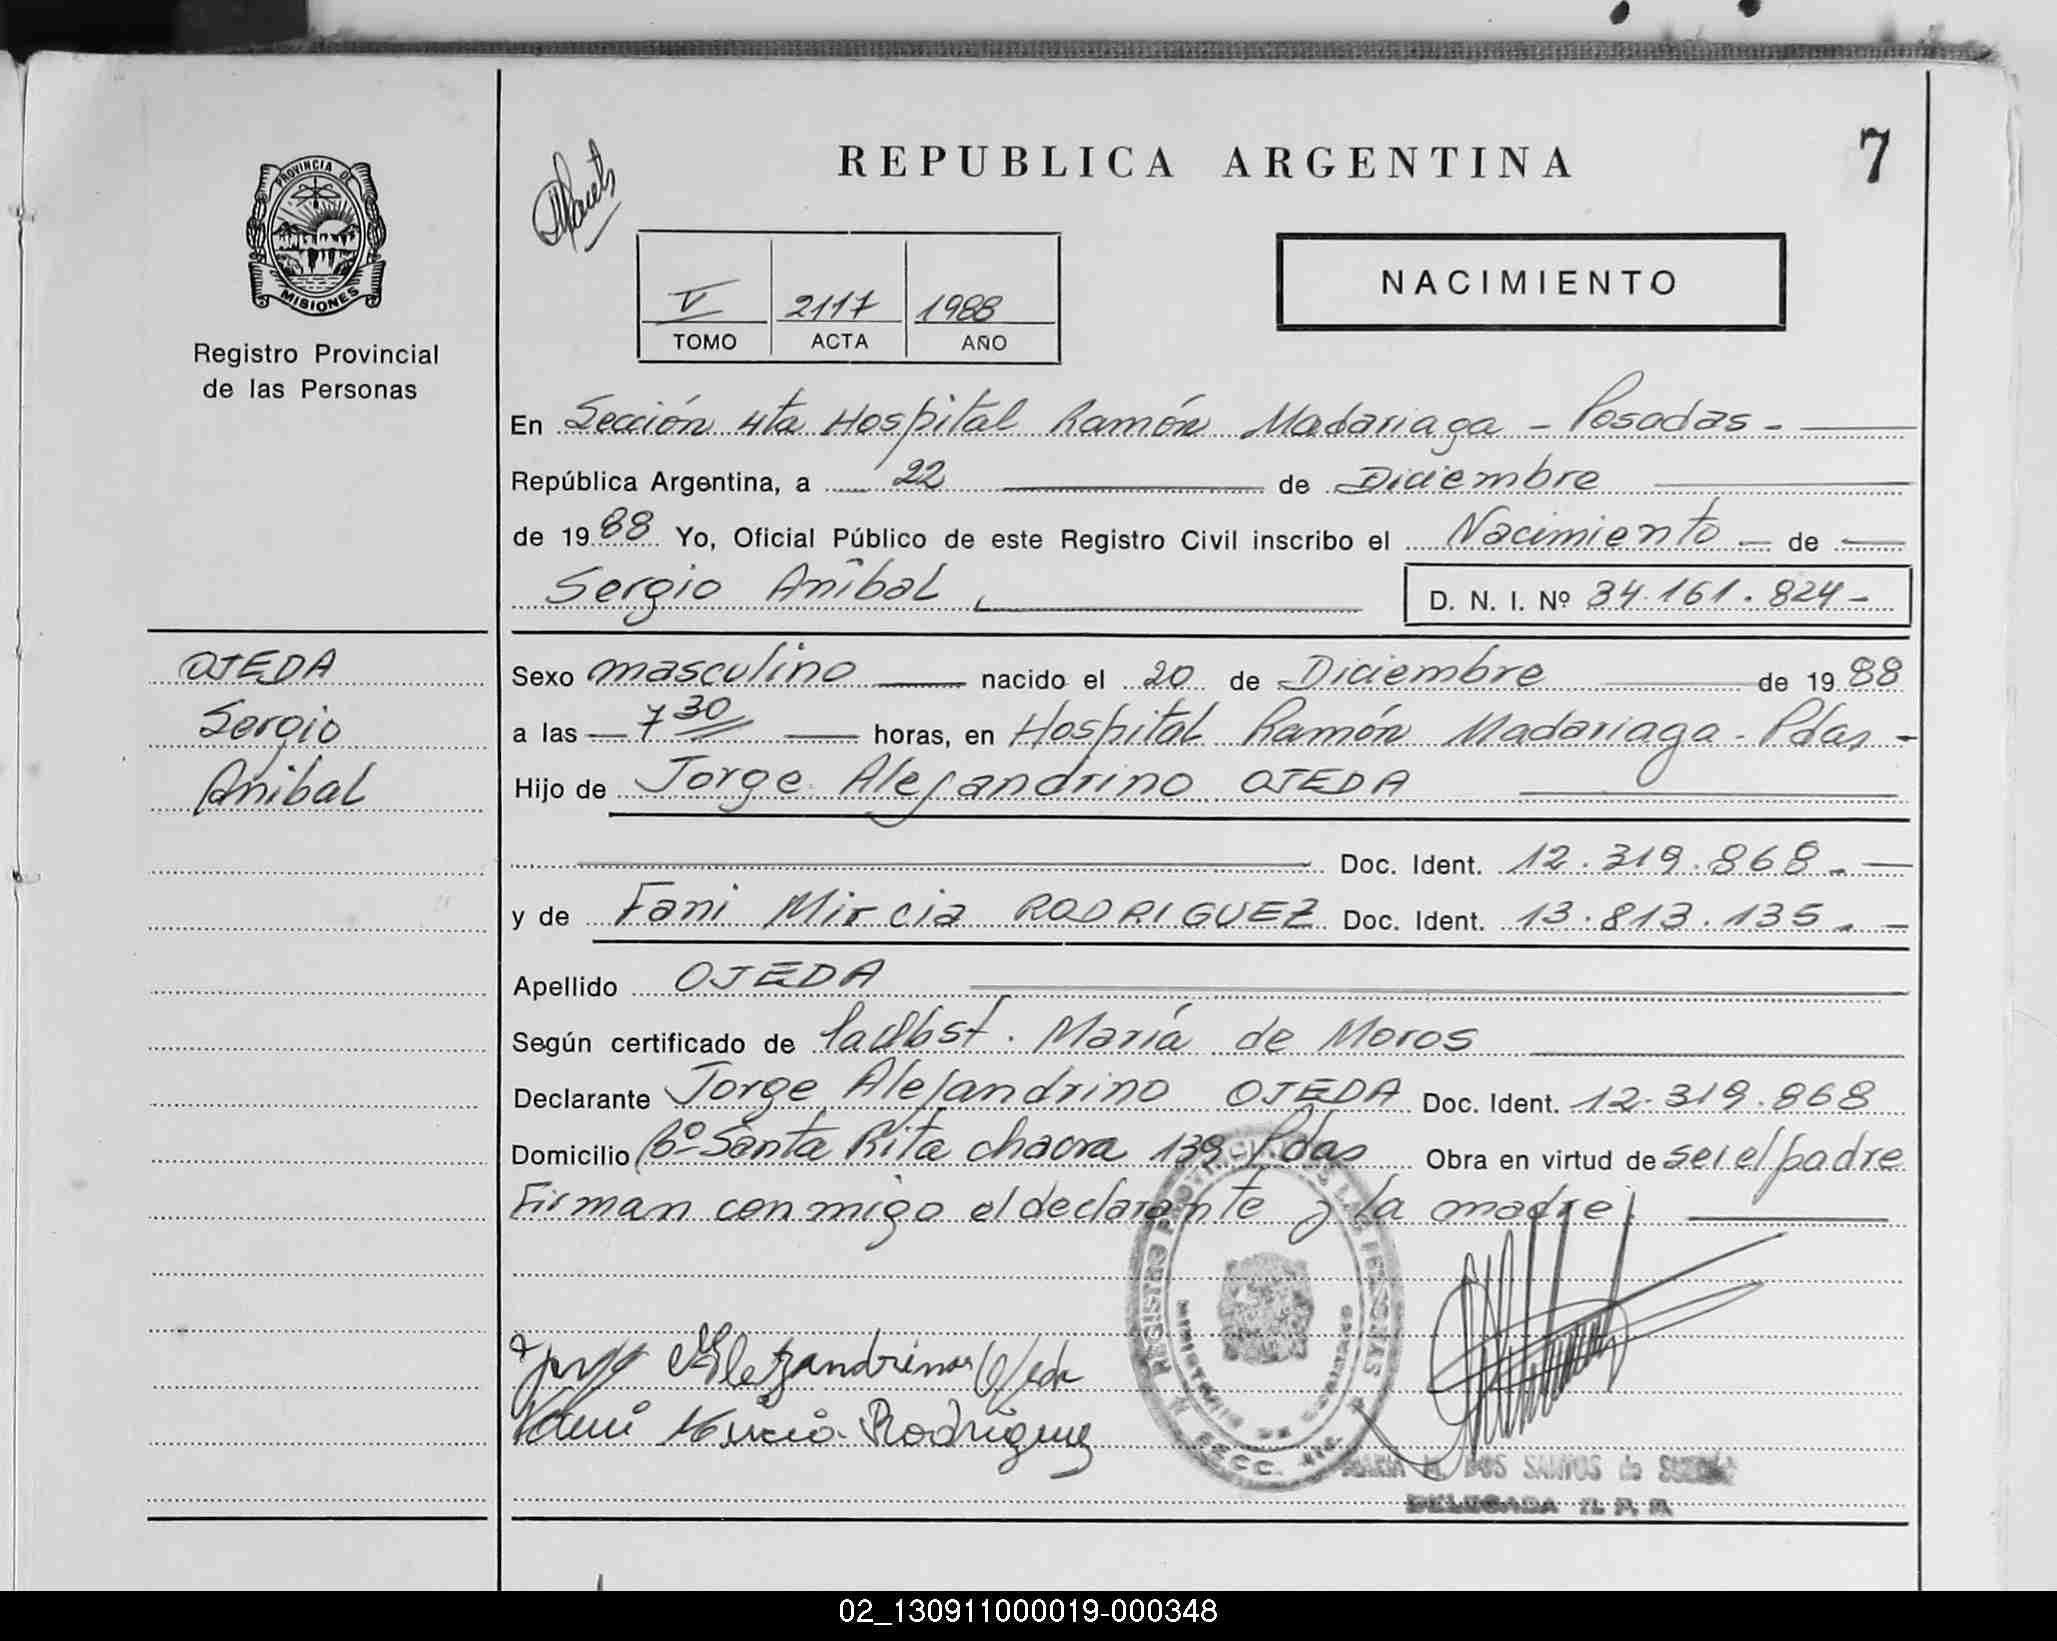 REPUBLICA ARGENTINA
7
PROVINCIA DE
MISIONES
Registro Provincial
de las Personas
V 2117 1988
TOMO ACTA AÑO
NACIMIENTO
En Sección 4ta Hospital Ramón Madariaga - Posadas -
República Argentina, a 22 de Diciembre
de 1988 Yo, Oficial Público de este Registro Civil inscribo el Nacimiento de
Sergio Aníbal D. N. I. Nº 34.161.824-
OJEDA
Sergio
Anibal
Sexo masculino nacido el 20 de Diciembre de 1988
a las 7 30 horas, en Hospital Ramón Madariaga - Pdas -
Hijo de Jorge Alejandrino OJEDA
Doc. Ident. 12.319.868.-
y de Fani Mircia RODRIGUEZ Doc. Ident. 13.813.135.-
Apellido OJEDA
Según certificado de María de Moros
Declarante Jorge Alejandrino OJEDA Doc. Ident. 12.319.868
Domicilio Bº Santa Rita chacra 139 Pdas Obra en virtud de ser el padre
Firman conmigo el declarante y la madre
Jorge Alejandrino Ojeda
Fani Mircia Rodriguez
REGISTRO PROVINCIAL DE LAS PERSONAS
MINISTERIO DE GOBIERNO
SECC.
MARIA DOS SANTOS de
DELEGADA R. P. P.
02_130911000019-000348